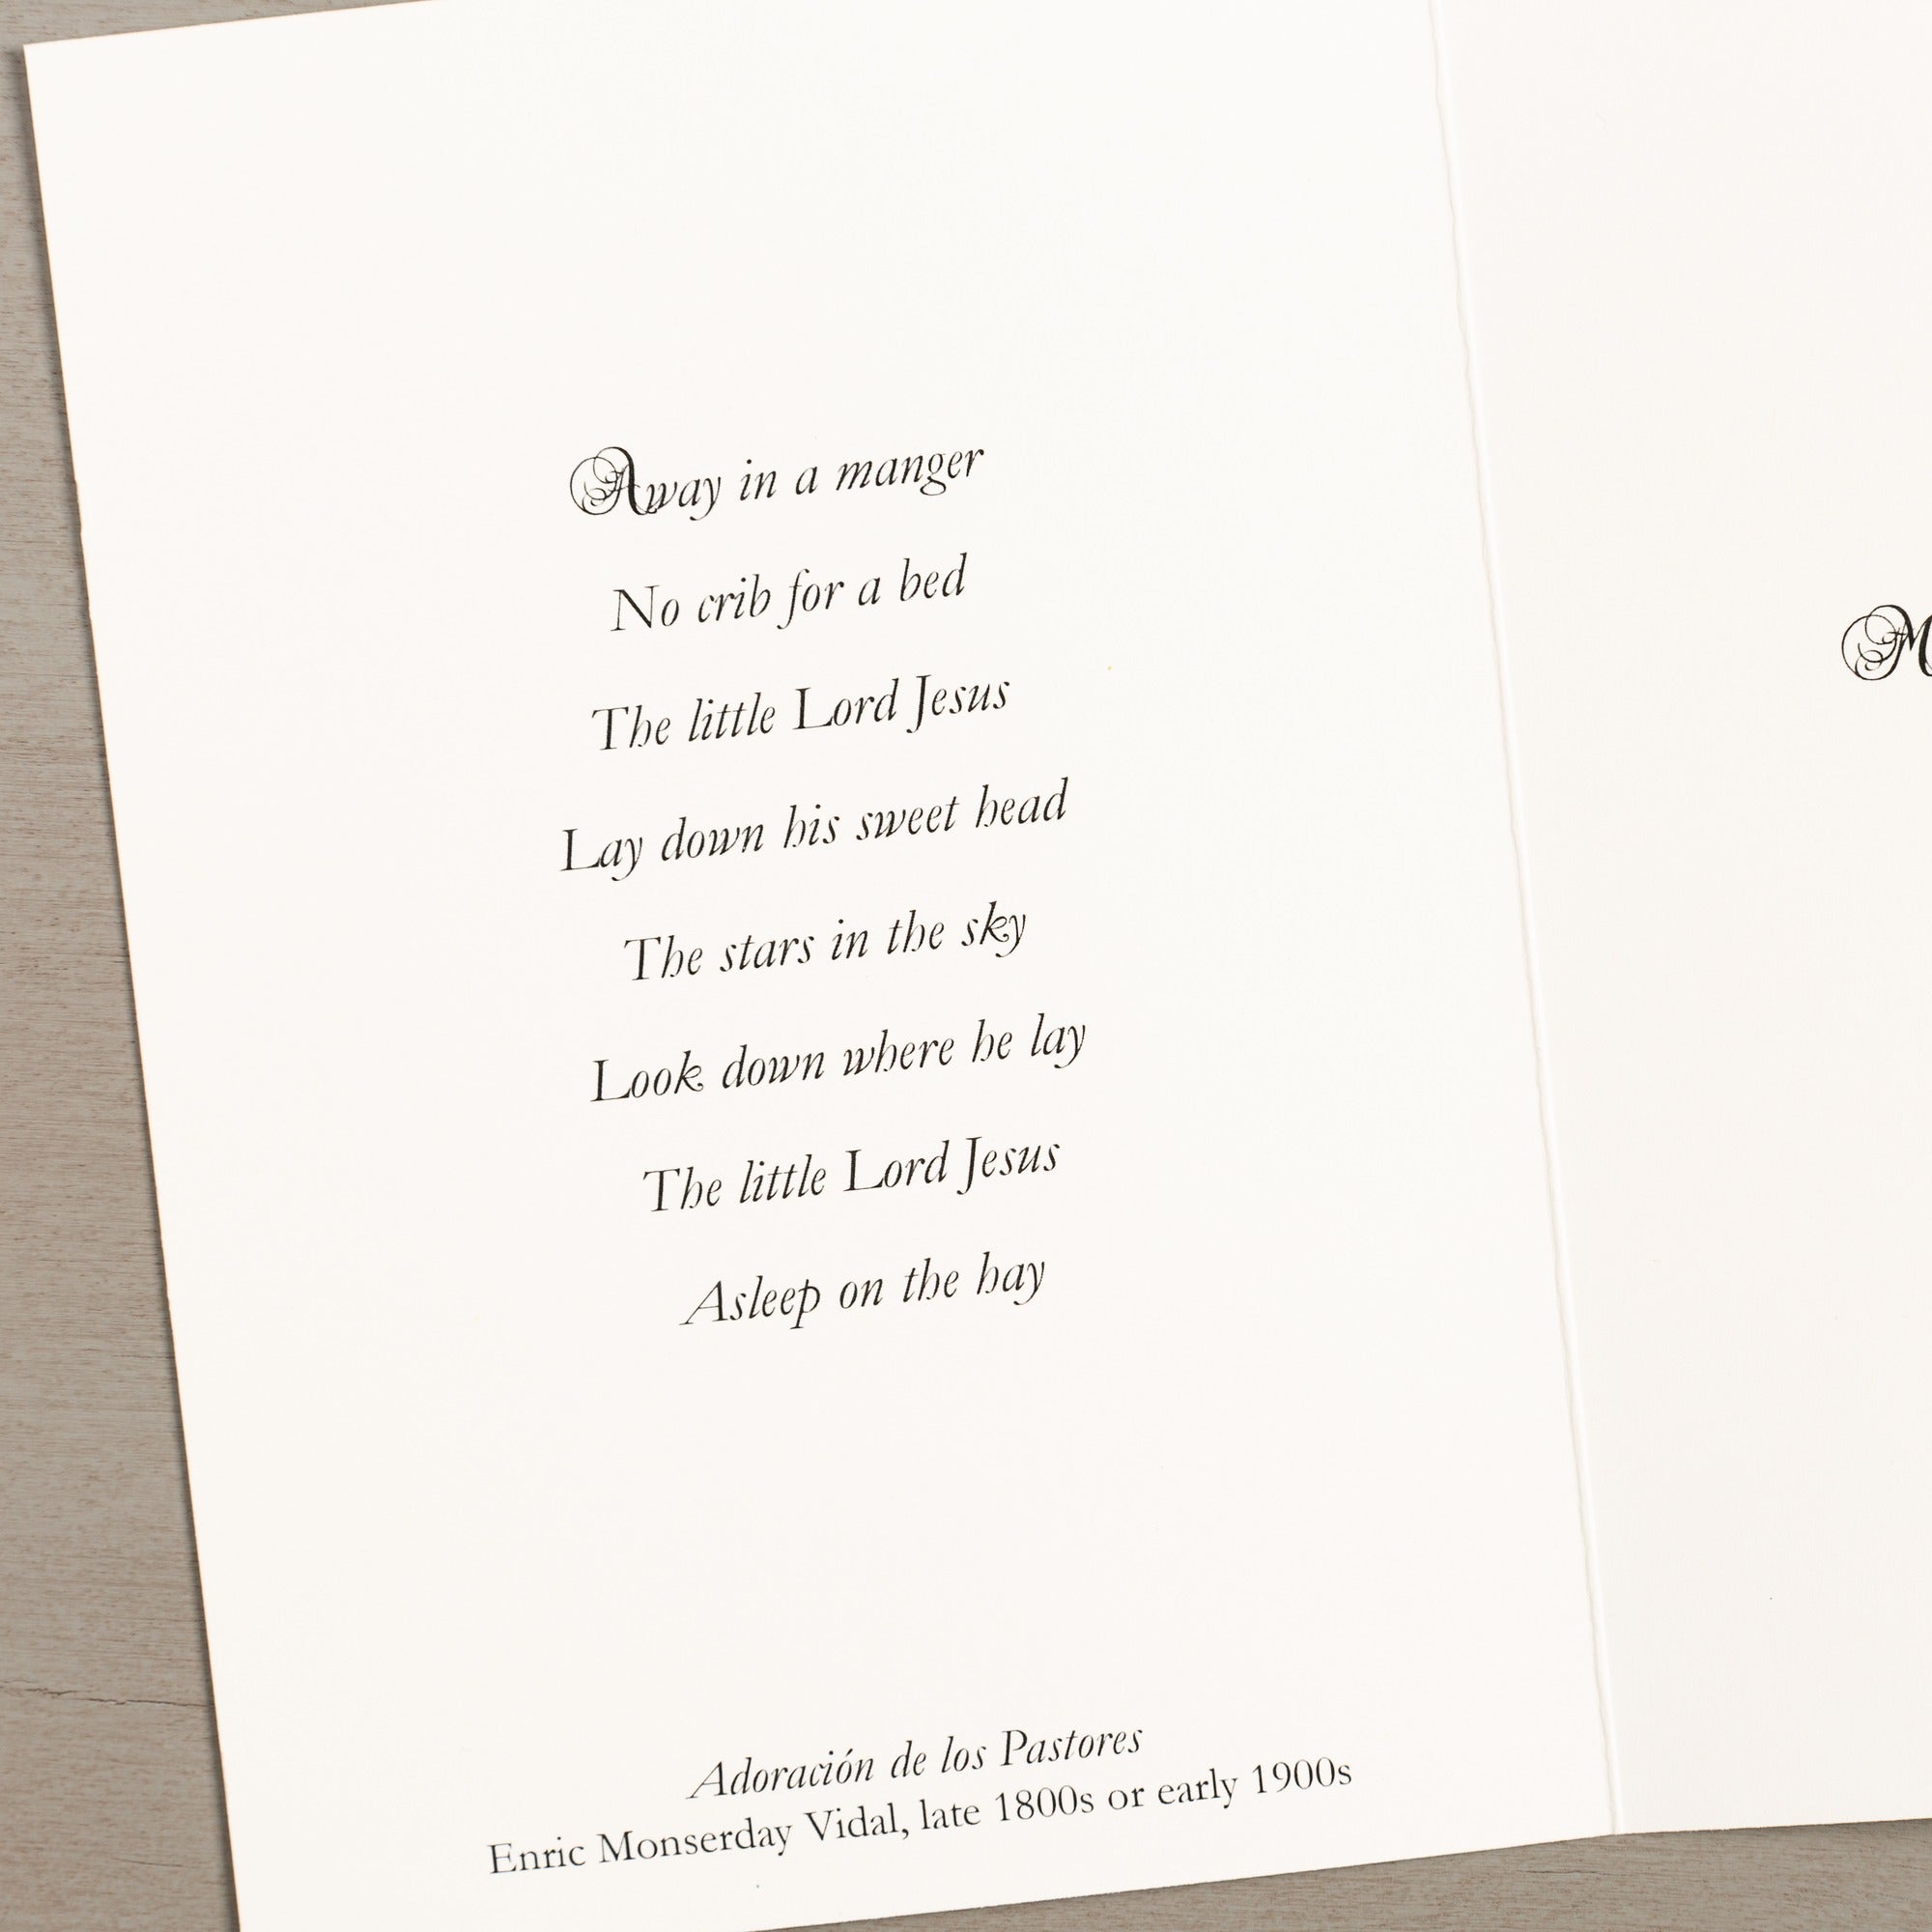 Away in a manger
No crib for a bed
The little Lord Jesus
Lay down his sweet head
The stars in the sky
Look down where he lay
The little Lord Jesus
Asleep on the hay
Adoración de los Pastores
Enric Monserday Vidal, late 1800s or early 1900s